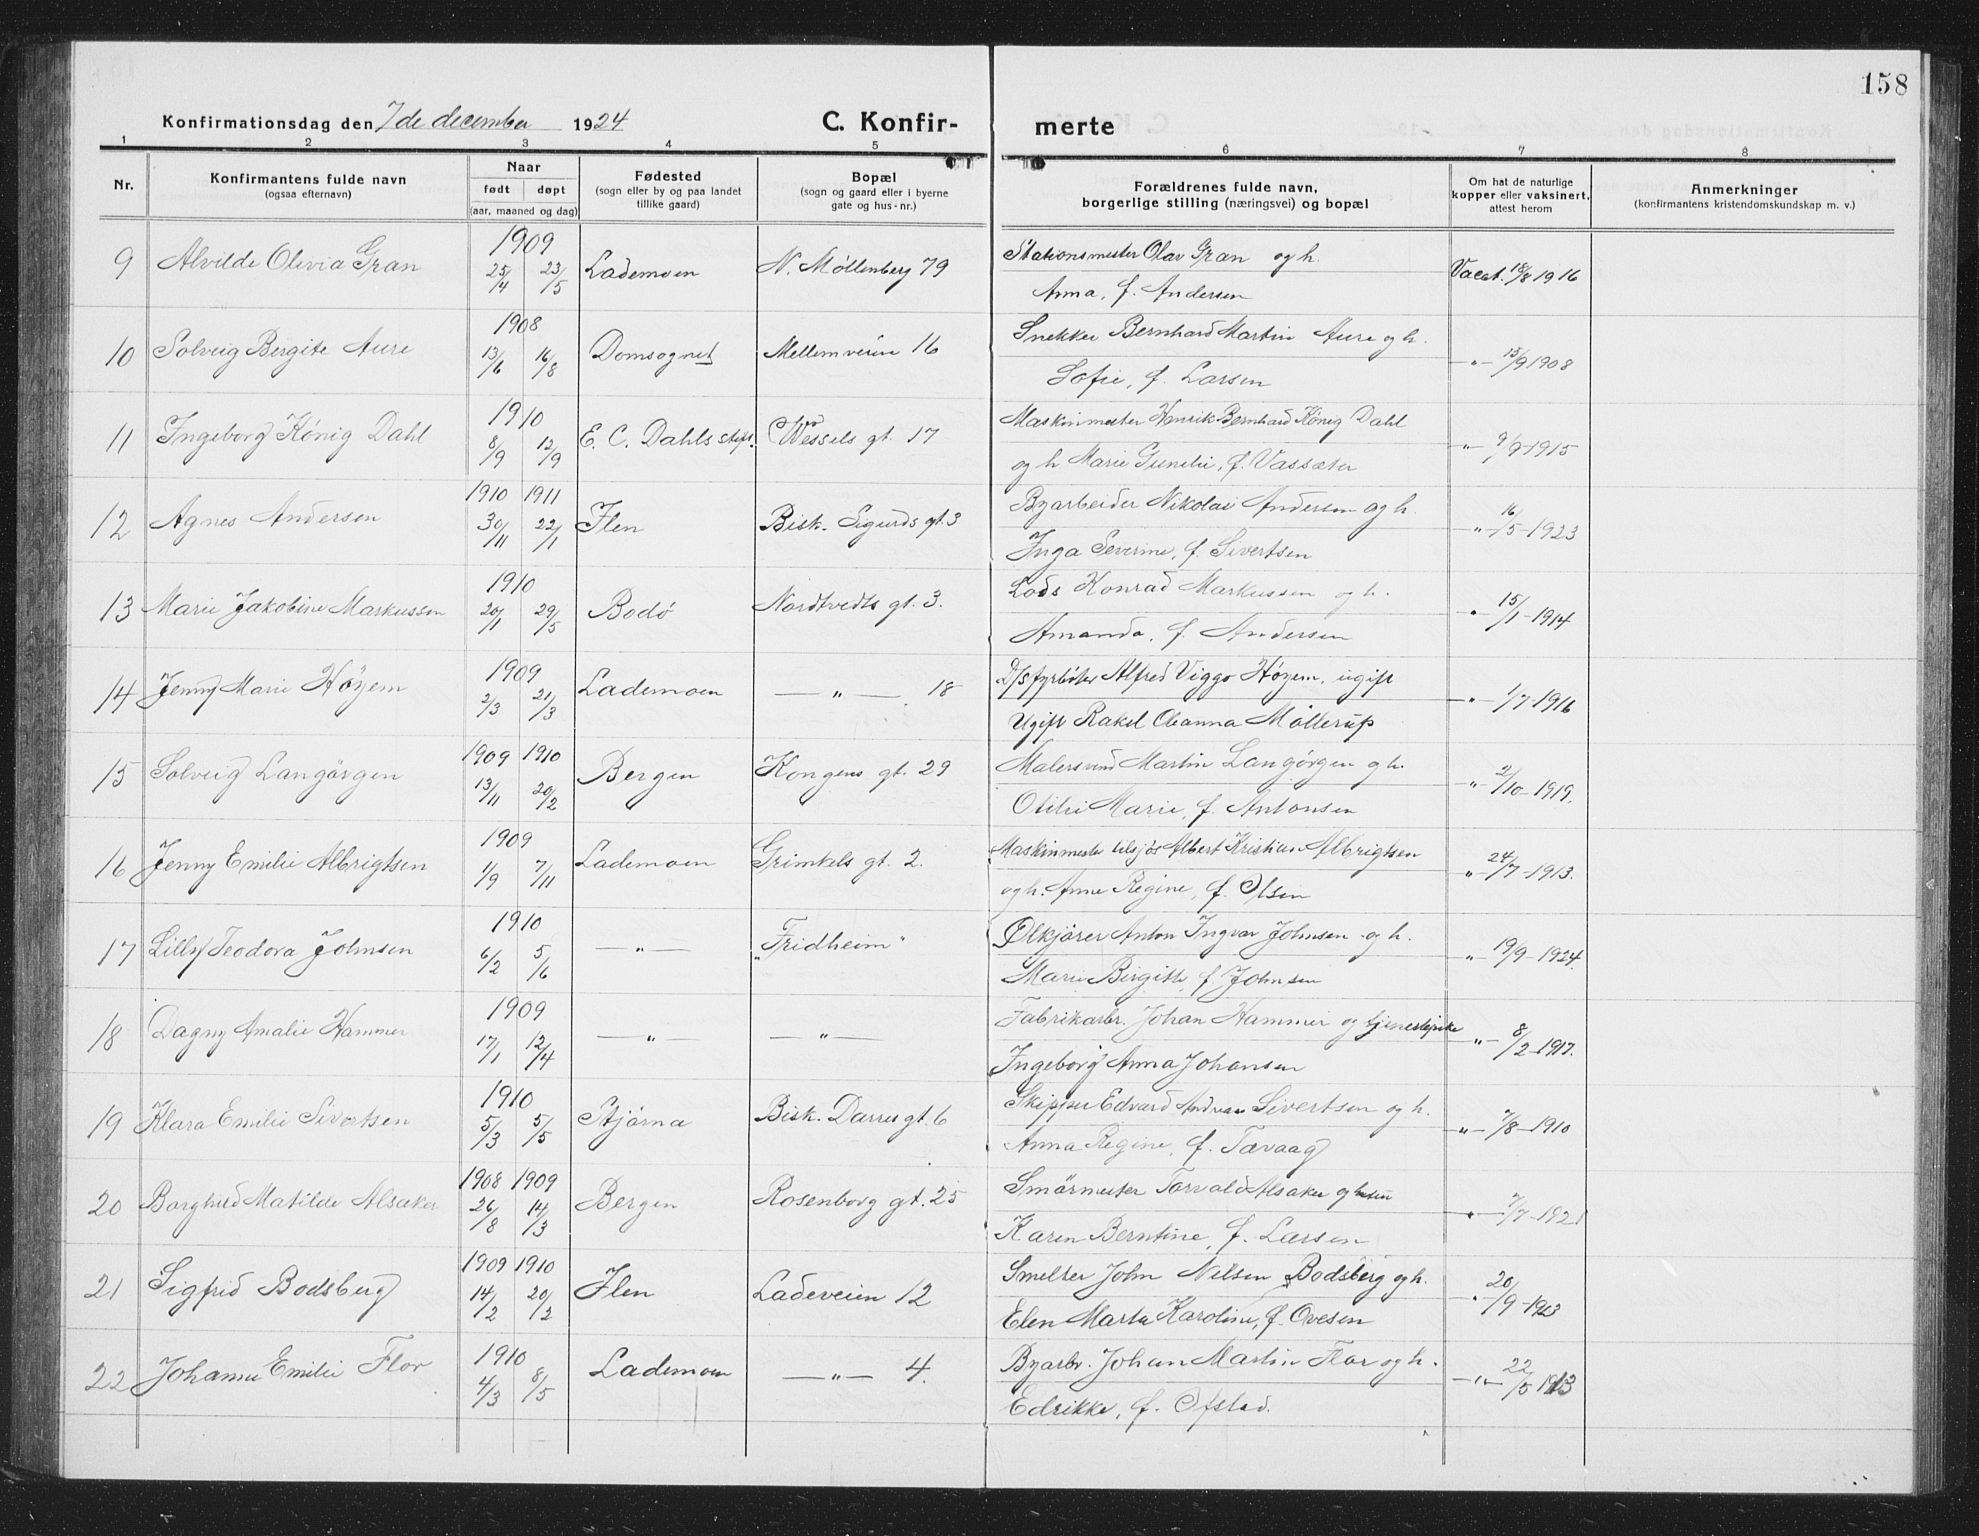 158
Konfirmationsdag den 7de december 1924
C. Konfir-merte
1 2 3 4 5 6 7 8
Nr.
Konfirmantens fulde navn
(ogsaa efternavn)
Naar
født døpt
(aar, maaned og dag)
Fødested
(sogn eller by og paa landet
tillike gaard)
Bopæl
(sogn og gaard eller i byerne
gate og hus-nr.)
Forældrenes fulde navn,
borgerlige stilling (næringsvei) og bopæl
Om hat de naturlige
kopper eller vaksinert,
attest herom
Anmerkninger
(konfirmantens kristendomskundskap m. v.)
9 Alvilde Olevia Gran 1909 25/4 23/5 Lademoen N. Møllenberg 79 Stationsmester Olav Gran og h. Vacat. 18/8 1916
Anna, f. Andersen
10 Solveig Bergite Aure 1908 13/6 16/8 Domsognet Mellemveien 16 Snekker Bernhard Martin Aure og h. —"— 15/9 1908
Sofie, f. Larsen
11 Ingeborg König Dahl 1910 8/9 12/9 E. C. Dahls stift. Wessels gt. 17 Maskinmester Henrik Bernhard König Dahl "— 9/9-1915
og h. Marie Gunelie, f. Vassæter
12 Agnes Andersen 1910 30/11 1911 22/1 Ilen Bisk. Sigurds gt. 3 Byarbeider Nikolai Andersen og h. "— 16/5-1923
Inga Severine, f. Sivertsen
13 Marie Jakobine Markussen 1910 20/1 29/5 Bodø Nordtvedts gt. 3. Lods Konrad Markussen og h. "— 15/1-1914
Amanda, f. Andersen
14 Jenny Marie Høyem 1909 2/3 21/3 Lademoen —"— 18 D/s fyrbøter Alfred Viggo Høyem, ugift "— 1/7-1916
Ugift Rakel Oleanna Möllerup
15 Solveig Langørgen 1909 13/11 1910 20/2 Bergen Kongens gt. 29 Malersvend Martin Langørgen og h. "— 2/10-1919.
Otilie Marie, f. Antonsen
16 Jenny Emilie Albrigtsen 1909 1/9 7/11 Lademoen Grimkels gt. 2. Maskinmester tilsjøs Albert Kristian Albrigtsen "— 24/7-1913.
og h. Anne Regine, f. Olsen
17 Lilly Teodora Johnsen 1910 6/2 5/6 —"— "Fridheim" Ølkjører Anton Ingvar Johnsen og h. "— 19/9-1924.
Marie Birgitte, f. Johnsen
18 Dagny Amalie Hammer 1909 17/1 12/4 —"— —"— Fabrikarbr. Johan Hammer og tjenestepike "— 8/2-1917.
Ingeborg Anna Johansen
19 Klara Emilie Sivertsen 1910 5/3 5/5 Stjørna Bisk. Darres gt. 6 Skipper Edvard Andreas Sivertsen og h. "— 7/8-1910
Anna Regine, f. Tævaag
20 Borghild Matilde Alsaker 1908 26/8 1909 14/3 Bergen Rosenborg gt. 25 Smørmester Torvald Alsaker og hustru "— 7/7-1921
Karen Berntine, f. Larsen
21 Sigfrid Bodsberg 1909 14/2 1910 20/2 Ilen Ladeveien 12 Smelter John Nilsen Bodsberg og h. "— 20/9-1923
Elen Marta Karoline, f. Ovesen
22 Johanne Emilie Flor 1910 4/3 8/5 Lademoen —"— 4. Byarbr. Johan Martin Flor og h. —"— 22/5 1913
Edrikke, f. Ofstad.